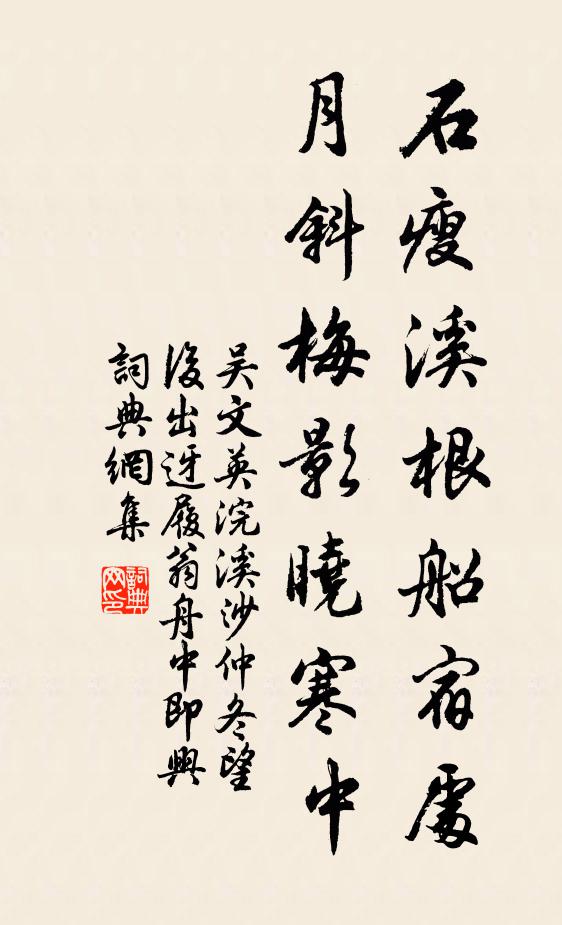 石瘦溪根船宿處
月斜梅影曉寒中
吴文英浣溪沙仲冬望
後出迓履翁舟中即興
詞典網集
詞典网印